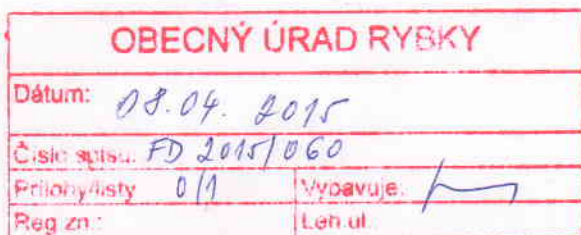 OBECNÝ ÚRAD RYBKY
Dátum: 08.04. 2015
Číslo spisu: FD 2015/060
Prílohy/listy 0/1 Vybavuje:
Reg.zn.: Leh.ul.